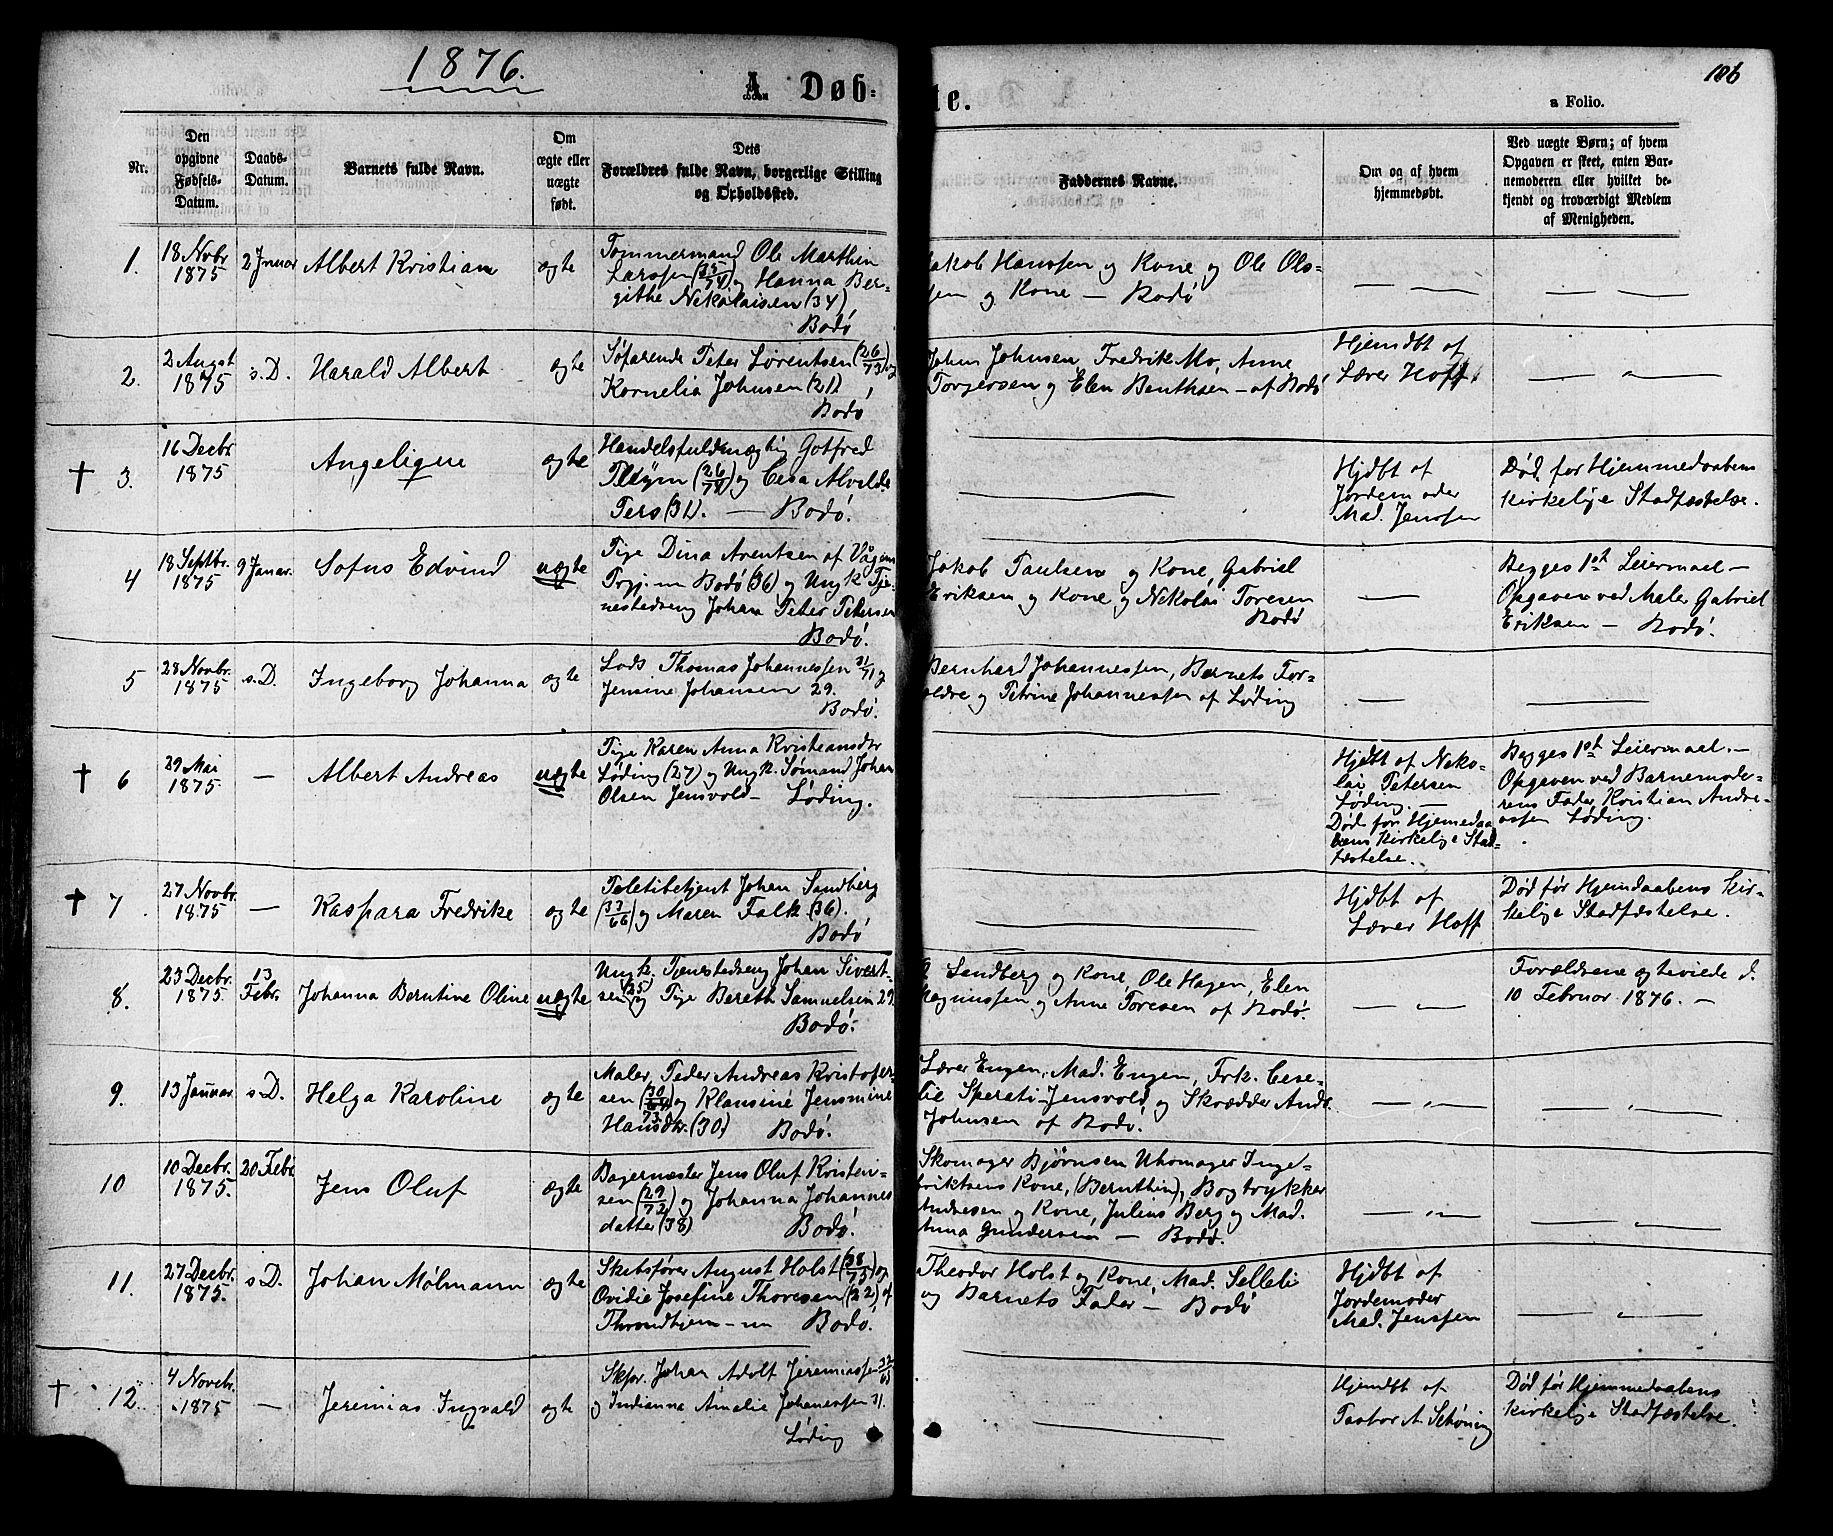 1876.
A. Døb-
te.
106
a Folio.
Nr.
Den
opgivne
Fødsels-
Datum.
Daabs-
Datum.
Barnets fulde Navn.
Om
ægte eller
uægte
født.
Dets
Forældres fulde Navn, borgerlige Stilling
og Opholdssted.
Faddernes Navne.
Om og af hvem
hjemmedøbt.
Ved uægte Børn; af hvem
Opgaven er skeet, enten Bar-
nemoderen eller hvilket be-
kjendt og troværdigt Medlem
af Menigheden.
1.
18 Novbr
1875
2 Januar
Albert Kristian
ægte
Tømmermand Ole Marthin
Larssen (35/74) og Hanna Ber-
githe Nekolaisen (34)
Bodø
Jakob Hanssen og Kone og Ole Ols-
sen og Kone — Bodø
— —
— —
2.
2 Augst
1875
s. D.
Harald Albert
ægte
Søfarende Peter Lorentsen (26/73) og
Kornelia Johnsen (21)
Bodø
Johan Johnsen, Fredrik Mo, Anne
Torgersen og Elen Benthsen — af Bodø
Hjemdbt af
Lærer Hoff.
— „ —
† 3.
16 Decbr
1875
Angelique
ægte
Handelsfuldmægtig Gotfred
(26/74) og Alvilde
(31). — Bodø.
—
Hjdbt af
Jordemoder
Mad. Jenssen
Død før Hjemmedaabens
kirkelige Stadfæstelse.
4
18 Septbr.
1875
9 Januar.
Sofus Edvind
uægte
Pige Dina Arentsen af Vågan
Prgj. nu Bodø (36) og Ungk Tje-
nestedreng Johan Peter Petersen
Bodø.
Jakob Paulsen og Kone, Gabriel
Eriksen og Kone og Nekolai Toresen
Bodø
—
Begges 1st Leiermaal —
Opgaven ved Maler Gabriel
Eriksen — Bodø.
5
28 Novbr.
1875
s. D.
Ingeborg Johanna
ægte
Lods Thomas Johannessen 31/71 og
Jensine Johansen 29.
Bodø.
Bernhard Johannessen, Barnets For-
ældre og Petrine Johannessen af Løding
—
—
† 6
29 Mai
1875.
—
Albert Andreas
uægte
Pige Karen Anna Kristiansdtr
Løding (27) og Ungk. Sømand Johan
Olsen Jensvold — Løding.
—
Hjdbt af Neko-
lai Petersen
Løding. —
Død før Hjemmedaa-
bens kirkelige Stad-
fæstelse.
Begges 1st Leiermaal. —
Opgaven ved Barnemode-
rens Fader Kristian Andre-
assen Løding.
† 7.
27 Novbr.
1875
—
Kaspara Fredrike
ægte
Politibetjent Johan Sandberg
(33/66) og Maren Falk (36).
Bodø
—
Hjdbt af
Lærer Hoff
Død før Hjemdaabens Kir-
kelige Stadfæstelse.
8.
23 Decbr.
1875
13
Febr.
Johanna Berntine Oline
uægte
Ungk. Tjenestedreng Johan Sivert-
sen (25) og Pige Bereth Samuelsen 29.
Bodø.
Sandberg og Kone, Ole Hagen, Elen
Magnussen og Anne Toresen af Bodø.
— „ —
Forældrene ægteviede d.
10 Februar 1876. —
9.
13 Januar.
s. D.
Helga Karoline
ægte
Maler Peder Andreas Kristofer-
sen (30/73) og Klausine Jensmine
Hansdtr. (30) Bodø.
Lærer Engen, Mad. Engen, Frk. Cese-
lie Sperati-Jensvold, og Skrædder Ands.
Johnsen af Bodø.
— „ —
— „ —
10
10 Decbr.
1875.
20 Febr
Jens Oluf
ægte
Bagermester Jens Oluf Kristen-
sen (29/72) og Johanna Johannes
datter (38) Bodø.
Skomager Bjørnsen Uhrmager Inge-
briktsens Kone, (Bernthin), Bogtrykker
Andresen og Kone, Julius Berg og Mad.
Anna Gundersen — Bodø.
— „ —
— „ —
11.
27 Decbr.
1875.
s D.
Johan Mølmann
ægte
Skibsfører August Holst (38/75) og
Ovidie Josefine Thoresen (22) af
Throndhjem — nu Bodø.
Theodor Holst og Kone, Mad. Sellebi
og Barnets Fader — Bodø
Hjdbt af
Jordemoder
Mad. Jenssen
— „ —
† 12.
4 Novebr.
1875
—
Jeremias Ingvald
ægte
Skfør. Johan Adolf Jeremiassen
og Indianna Amalie Johanessen 31.
Løding
—
Hjemdbt af
Pastor A. Schøning
Død før Hjemmedaabens
kirkelige Stadfæstelse.